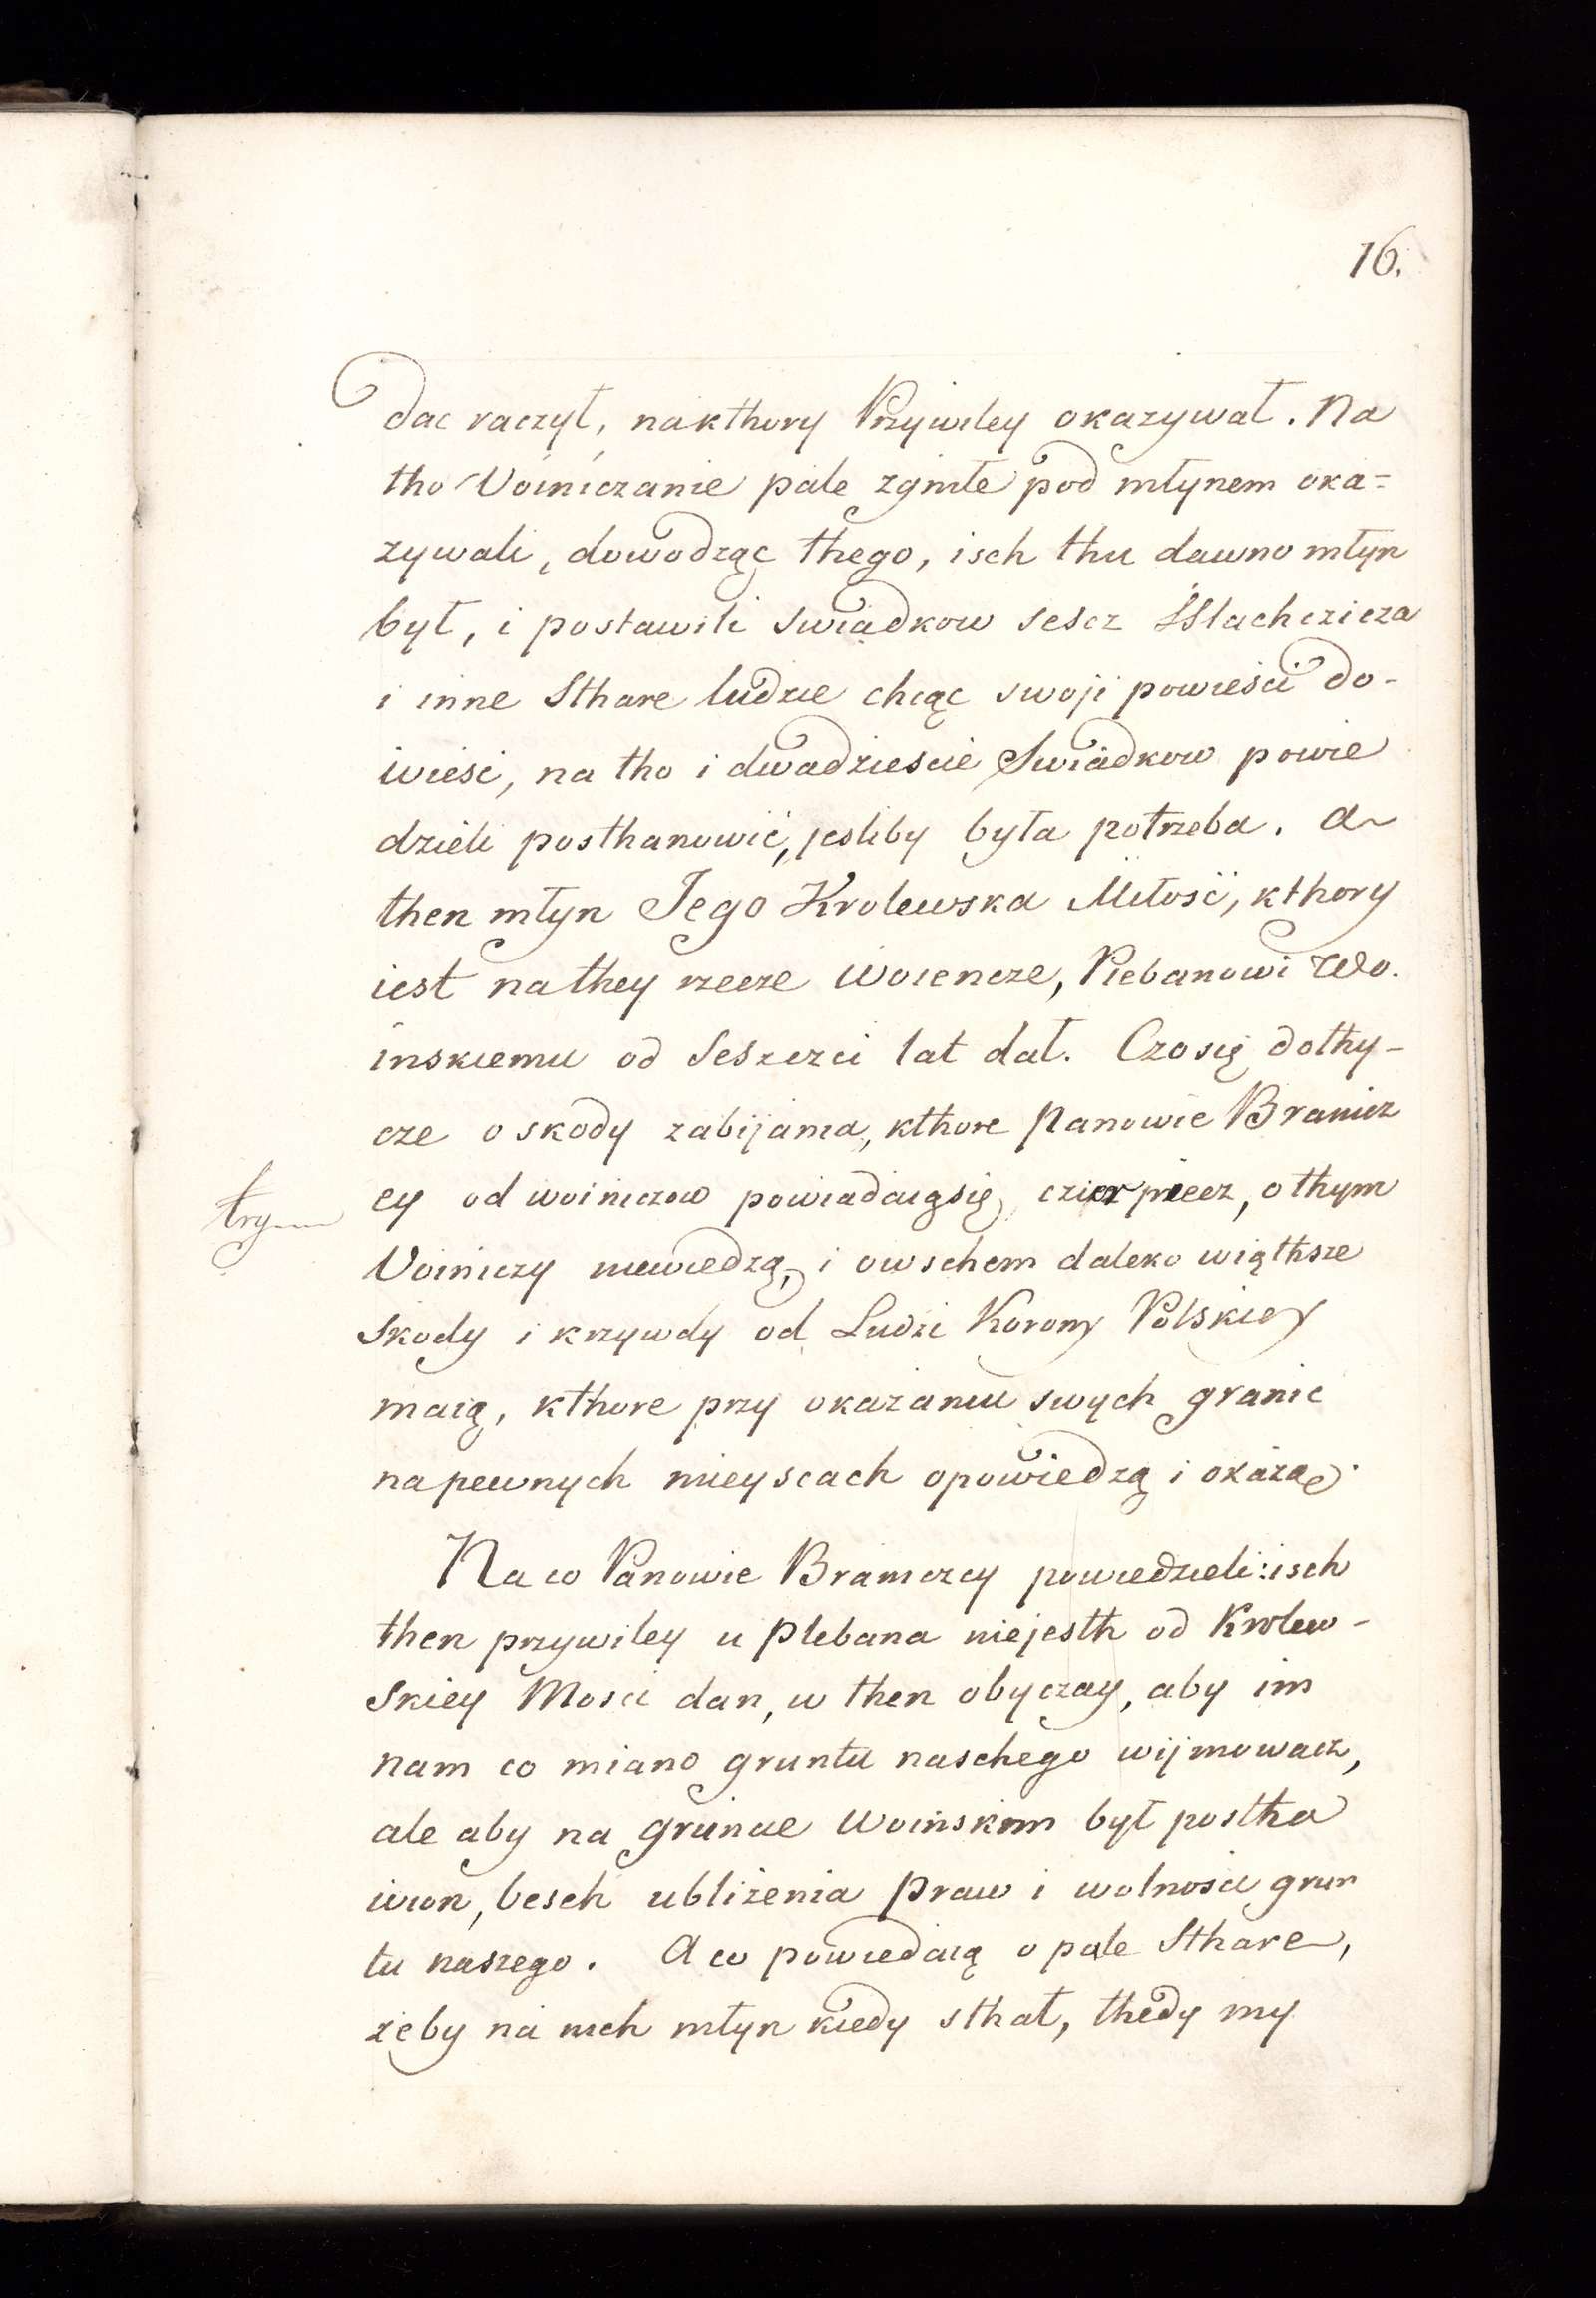 16.
dac raczył, nakthory Przywiley okazywał. Na
tho Woiniczanie pale zgniłe pod młynem oka=
zywali, dowodząc thego, isch thu dawno młyn
był, i postawili swiadkow sescz Sslachczicza
i inne Sthare ludzie chcąc swoji powieści do-
wieśc, na tho i dwadziescie Swiadkow powie
dzieli posthanowić, jesliby była potrzeba. A
then młyn Jego Krolewska Miłość, kthory
iest nathey rzecze Woiencze, Plebanowi Wo.
inskiemu od Seszczci lat dał. Czosię dothy-
cze o skody zabijania, kthore Panowie Branicz
cy od woiniczow powiadaiąsię czierpiecz, o thym
Voiniczy niewiedzą, i owschem daleko wiąthsze
Skody i krzywdy od Ludzi Korony Polskiey
maią, kthore przy okazaniu swych granic
napewnych mieyscach opowiedzą i okażą.
Na co Panowie Braniczcy powiedzieli: isch
then przywiley u Plebana niejesth od Krolew-
Skiey Mosci dan, w then obyczay, aby im
nam co miano gruntu naschego wijmowacz,
ale aby na gruncie Woinskim był postha
wion, besch ubliżenia Praw i wolnosci grun
tu naszego. A co powiedaią o pale Sthare,
żeby na nich młyn kiedy sthał, thedy my